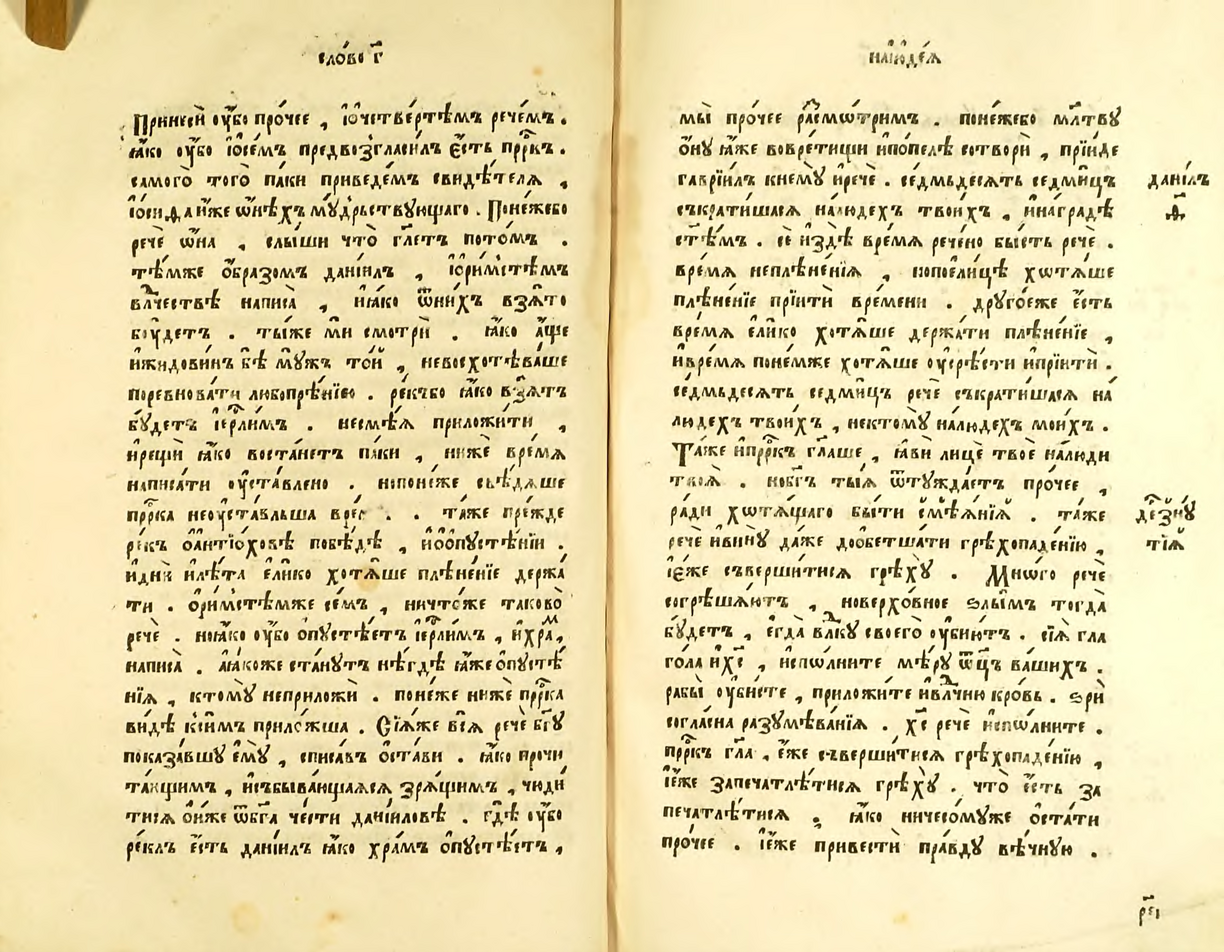 сло́во г҃
Принеси̑ ᲂу҆́бо про́чее , і҆ѡ҆четве́ртѣмъ рече́мъ .
ꙗ҆́ко ᲂу҆́бо і҆ѡ҆се́мъ предвозгласи́лъ є҆́сть прⷪ҇ркъ .
самого̀ того̀ па́ки приведе́мъ свидѣ́телѧ ,
і҆ѡ҆сиѳа и҆́же ѡ҆ни́хъ мꙋ́дрьствꙋющаго . Поне́жебо
речѐ ѡ҆на̀ , слы́ши что̀ гл҃етъ пото́мъ .
тѣ́мже ѻ҆́бразомъ данїи́лъ , і҆ѡ҆ри́мстѣмъ
влⷣчествѣ написа̀ , и҆ꙗ҆́ко ѿни́хъ взѧ́то
бꙋ́детъ . ты́же мѝ смотрѝ . ꙗ҆́ко а҆́ще
и҆жидови́нъ бѣ̀ мꙋ́жъ то́й , невосхотѣ́ваше
поревнова́ти любопрѣ́нїю . ре́къбо ꙗ҆́ко взѧ́тъ
бꙋ́детъ і҆ерⷭ҇ли́мъ . несмѣ́ѧ приложи́ти ,
и҆рещѝ ꙗ҆́ко воста́нетъ па́ки , ни́же вре́мѧ
написа́ти ᲂу҆ста́влено . ноне́же свѣ́дѧше
прⷪ҇рка неᲂу҆ста́вльша вре . . та́же пре́жде
ре́къ ѻ҆а҆нтїо́ховѣ побѣ́дѣ , и҆ѻ҆ѻ҆пꙋстѣ́нїи .
и҆днѝ и҆лѣ́та є҆ли́ко хотѧ́ше плѣне́нїе держа́
ти . ѻ҆ри́мстѣмже се́мъ , ничто́же таково̀
речѐ . ноꙗ҆́ко ᲂу҆́бо ѻ҆пꙋстѣ́етъ і҆ерⷭ҇ли́мъ , и҆хра́ⷨ,
написа̀ . а҆ꙗ҆́коже ста́нꙋтъ нѣ́гдѣ ꙗ҆́же ѻ҆пꙋстѣ́
нїѧ , ктомꙋ̀ неприложѝ . поне́же ни́же прⷪ҇рка
ви́дѣ кси́мъ прило́жша . Сїѧ́же всѧ̀ речѐ бг҃ꙋ
показа́вшꙋ є҆мꙋ̀ , списа́въ ѻ҆ста́ви . ꙗ҆́ко прочи
та́ющимъ , и҆събыва́ющаѧсѧ зрѧ́щимъ , чюди́
тисѧ ѻ҆́нже ѿбг҃а че́сти данїи́ловѣ . гдѣ̀ ᲂу҆́бо
ре́клъ є҆́сть данїи́лъ ꙗ҆́ко хра́мъ ѻ҆пꙋстѣ́етъ ,
наїюде́ѧ
мы̀ про́чее расмѡ́тримъ . поне́жебо мл҃твꙋ
ѻ҆́нꙋ ꙗ҆́же вовре́тищи и҆по́пелѣ сотворѝ , прїи́де
гаврїи́лъ кнемꙋ̀ и҆речѐ . се́дмьдесѧтъ седми́цъ
съкрати́шасѧ налю́дехъ твои́хъ , и҆на́градѣ
ст҃ѣ́мъ . сѐ и҆здѣ̀ вре́мѧ рече́но бы́сть речѐ .
вре́мѧ неплѣне́нїѧ , нопоели́цѣ хотѧ́ше
плѣне́нїе прїитѝ вре́мени . дрꙋго́еже є҆́сть
вре́мѧ є҆ли́ко хотѧ́ше держа́ти плѣне́нїе ,
и҆вре́мѧ понемже хотѧ́ше ᲂу҆срѣ́сти и҆прїитѝ .
се́дмьдесѧтъ седми́цъ речѐ съкрати́шасѧ на
лю́дехъ твои́хъ , нектомꙋ̀ налю́дехъ мои́хъ .
Та́же и҆прⷪ҇ркъ гл҃аше , ꙗ҆ви̑ лицѐ твоѐ налю́ди
твоѧ̀ . нобг҃ъ ты́ѧ ѿтꙋжда́етъ про́чее ,
ра́ди хотѧ́щаго бы́ти смѣѧ́нїѧ . та́же
речѐ и҆винꙋ̀ да́же доѻ҆бетша́ти грѣхопаде́нїю ,
і҆є҆́же съверши́тисѧ грѣхꙋ̀ . Мно́го речѐ
согрѣша́ютъ , новерхо́вное ѕлы́мъ тогда̀
бꙋ́детъ , є҆гда̀ влⷣкꙋ своего̀ ᲂу҆бию́тъ . сїѧ̀ гла
го́ла и҆хⷭ҇ , и҆спѡ́лните мѣ́рꙋ ѿц҃ъ ва́шихъ .
рабы̀ ᲂу҆бисте , приложи́те и҆влⷣчню кро́вь . ѕрѝ
согла́сна разꙋмѣва́нїѧ . хⷭ҇ речѐ и҆спѡ́лните .
прⷪ҇ркъ гл҃а , є҆́же съверши́тисѧ грѣхопаде́нїю ,
і҆є҆́же запечатлѣ́тисѧ грѣхꙋ̀ . что̀ є҆́сть за
печатлѣ́тисѧ , ꙗ҆́ко ничесомꙋ́же ѻ҆ста́ти
про́чее . і҆є҆́же привестѝ пра́вдꙋ вѣ́чнꙋю .
данїи́лъ
ѳ҃
де́знꙋ
тїѧ̀
рє҃і